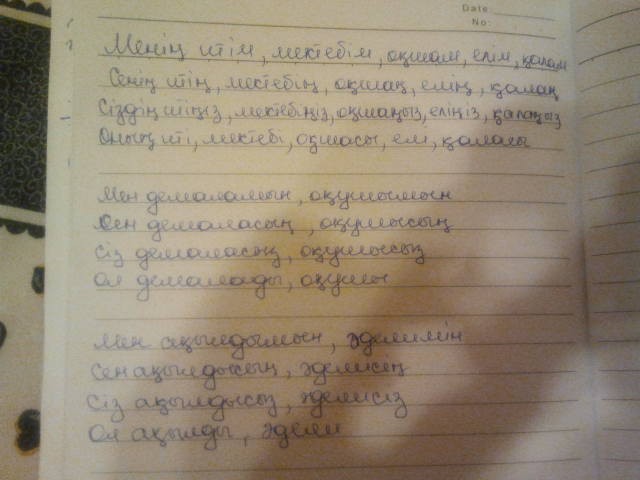 Date
No:
Менің итім, мектебім, ақшам, елім, қалам
Сенің итің, мектебің, ақшаң, елің, қалаң
Сіздің итіңіз, мектебіңіз, ақшаңыз, еліңіз, қалаңыз
Оның иті, мектебі, ақшасы, елі, қаласы
Мен демаламын, оқушымын
Сен демаласың, оқушысың
Сіз демаласыз, оқушысыз
Ол демалады, оқушы
Мен ақылдымын, әдемімін
Сен ақылдысың, әдемісің
Сіз ақылдысыз, әдемісіз
Ол ақылды, әдемі